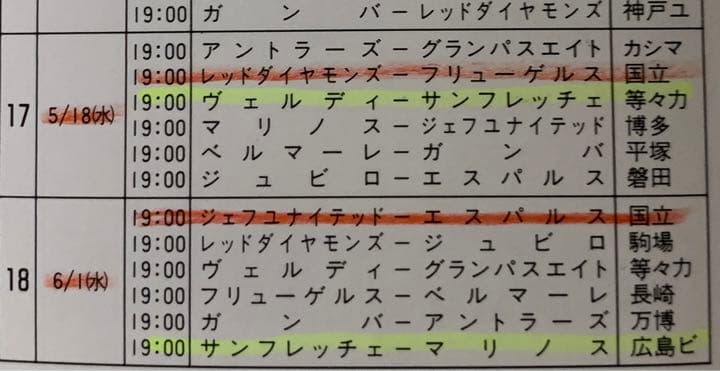 19:00 ガンバ－レッドダイヤモンズ 神戸ユ
19:00 アントラーズ－グランパスエイト カシマ
19:00 レッドダイヤモンズ－フリューゲルス 国立
19:00 ヴェルディ－サンフレッチェ 等々力
17 5/18(水) 19:00 マリノス－ジェフユナイテッド 博多
19:00 ベルマーレ－ガンバ 平塚
19:00 ジュビロ－エスパルス 磐田
19:00 ジェフユナイテッド－エスパルス 国立
19:00 レッドダイヤモンズ－ジュビロ 駒場
18 6/1(水) 19:00 ヴェルディ－グランパスエイト 等々力
19:00 フリューゲルス－ベルマーレ 長崎
19:00 ガンバ－アントラーズ 万博
19:00 サンフレッチェ－マリノス 広島ビ